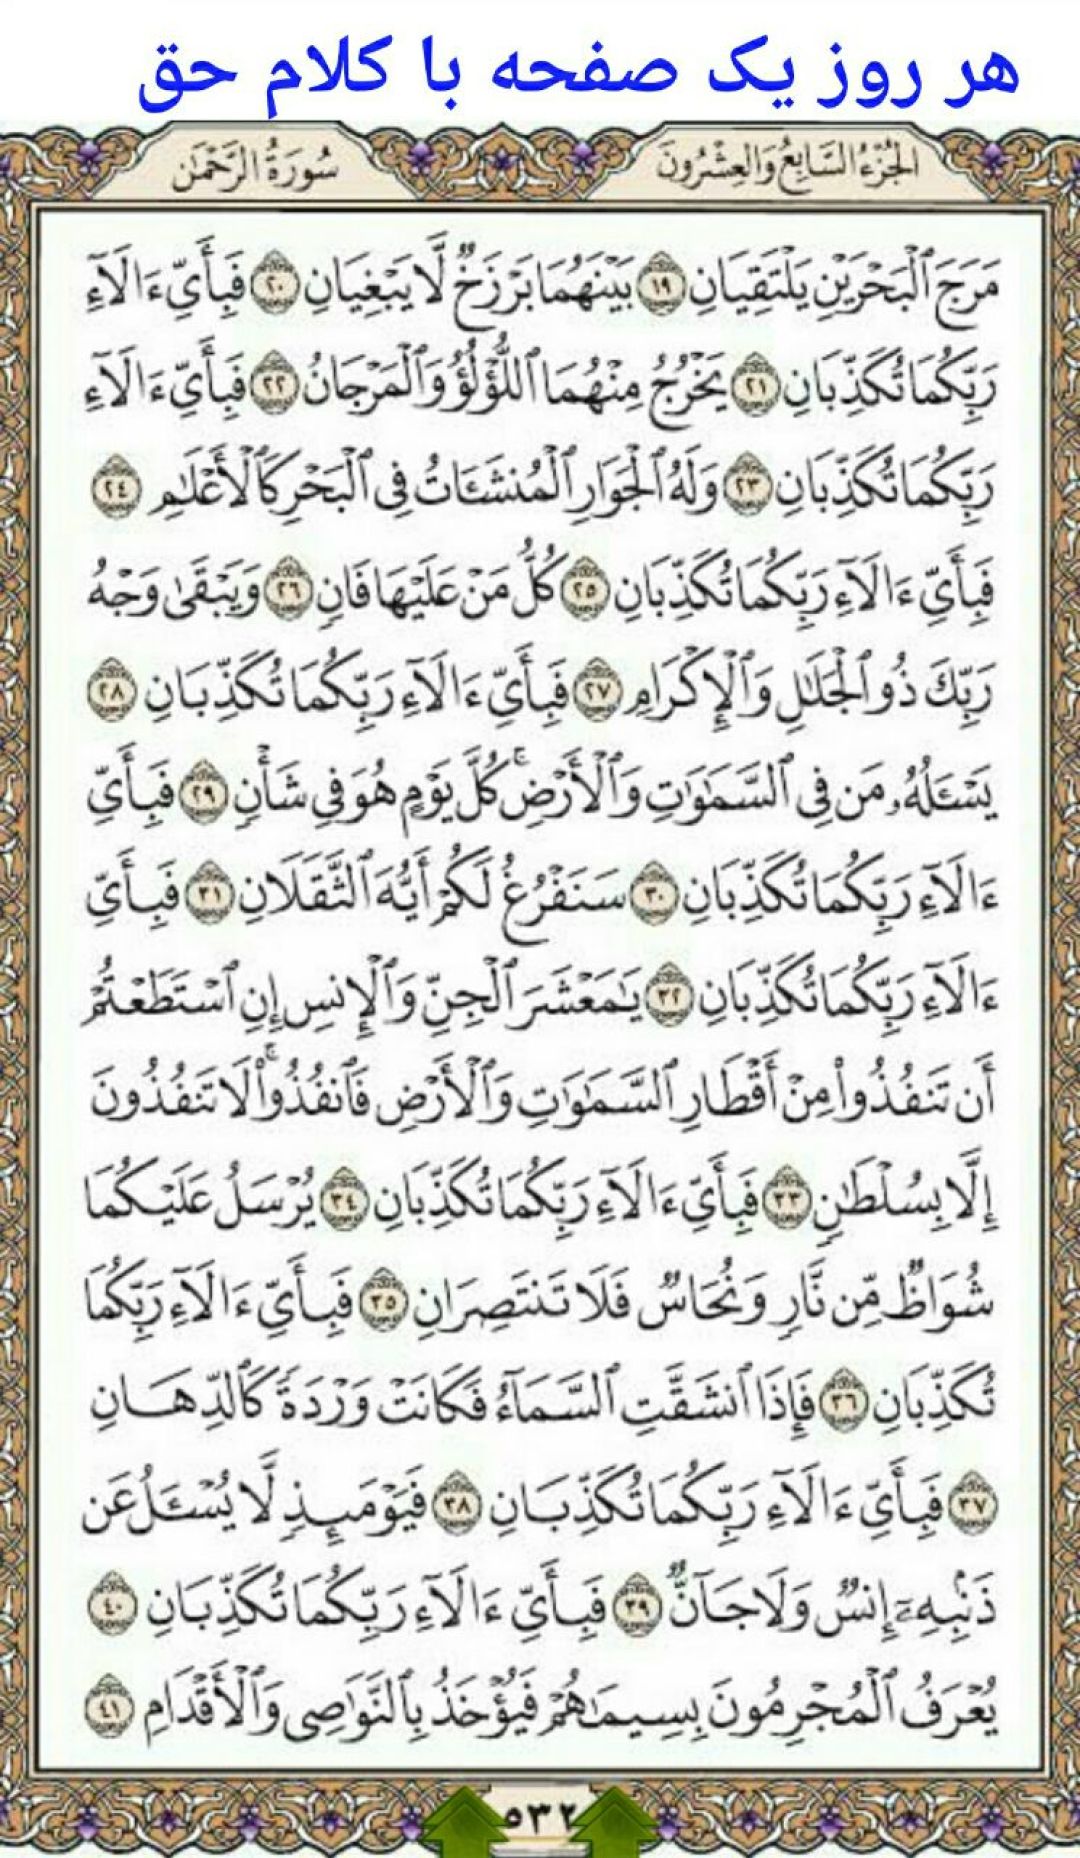 هر روز یک صفحه با کلام حق
الجُزْءُ السَّابِعُ وَالعِشْرُونَ
سُورَةُ الرَّحْمٰن
مَرَجَ ٱلْبَحْرَيْنِ يَلْتَقِيَانِ ١٩ بَيْنَهُمَا بَرْزَخٌ لَّا يَبْغِيَانِ ٢٠ فَبِأَيِّ ءَالَآءِ
رَبِّكُمَا تُكَذِّبَانِ ٢١ يَخْرُجُ مِنْهُمَا ٱللُّؤْلُؤُ وَٱلْمَرْجَانُ ٢٢ فَبِأَيِّ ءَالَآءِ
رَبِّكُمَا تُكَذِّبَانِ ٢٣ وَلَهُ ٱلْجَوَارِ ٱلْمُنشَـَٔاتُ فِي ٱلْبَحْرِ كَٱلْأَعْلَـٰمِ ٢٤
فَبِأَيِّ ءَالَآءِ رَبِّكُمَا تُكَذِّبَانِ ٢٥ كُلُّ مَنْ عَلَيْهَا فَانٍ ٢٦ وَيَبْقَىٰ وَجْهُ
رَبِّكَ ذُو ٱلْجَلَـٰلِ وَٱلْإِكْرَامِ ٢٧ فَبِأَيِّ ءَالَآءِ رَبِّكُمَا تُكَذِّبَانِ ٢٨
يَسْـَٔلُهُۥ مَن فِي ٱلسَّمَـٰوَٰتِ وَٱلْأَرْضِ ۚ كُلَّ يَوْمٍ هُوَ فِي شَأْنٍ ٢٩ فَبِأَيِّ
ءَالَآءِ رَبِّكُمَا تُكَذِّبَانِ ٣٠ سَنَفْرُغُ لَكُمْ أَيُّهَ ٱلثَّقَلَانِ ٣١ فَبِأَيِّ
ءَالَآءِ رَبِّكُمَا تُكَذِّبَانِ ٣٢ يَـٰمَعْشَرَ ٱلْجِنِّ وَٱلْإِنسِ إِنِ ٱسْتَطَعْتُمْ
أَن تَنفُذُوا۟ مِنْ أَقْطَارِ ٱلسَّمَـٰوَٰتِ وَٱلْأَرْضِ فَٱنفُذُوا۟ ۚ لَا تَنفُذُونَ
إِلَّا بِسُلْطَـٰنٍ ٣٣ فَبِأَيِّ ءَالَآءِ رَبِّكُمَا تُكَذِّبَانِ ٣٤ يُرْسَلُ عَلَيْكُمَا
شُوَاظٌ مِّن نَّارٍ وَنُحَاسٌ فَلَا تَنتَصِرَانِ ٣٥ فَبِأَيِّ ءَالَآءِ رَبِّكُمَا
تُكَذِّبَانِ ٣٦ فَإِذَا ٱنشَقَّتِ ٱلسَّمَآءُ فَكَانَتْ وَرْدَةً كَٱلدِّهَانِ
٣٧ فَبِأَيِّ ءَالَآءِ رَبِّكُمَا تُكَذِّبَانِ ٣٨ فَيَوْمَئِذٍ لَّا يُسْـَٔلُ عَن
ذَنۢبِهِۦٓ إِنسٌ وَلَا جَآنٌّ ٣٩ فَبِأَيِّ ءَالَآءِ رَبِّكُمَا تُكَذِّبَانِ ٤٠
يُعْرَفُ ٱلْمُجْرِمُونَ بِسِيمَـٰهُمْ فَيُؤْخَذُ بِٱلنَّوَٰصِي وَٱلْأَقْدَامِ ٤١
٥٣٢